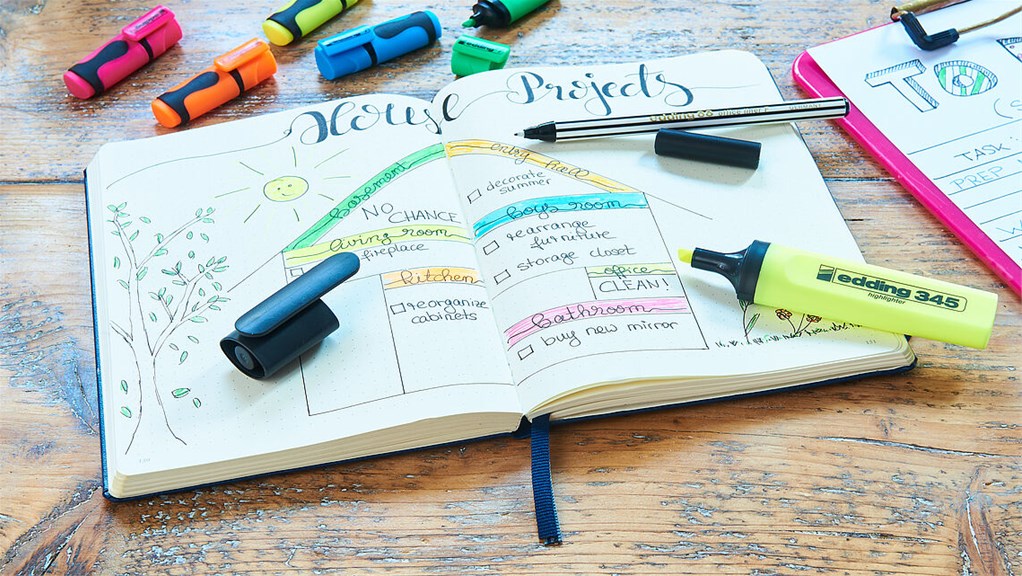 House Projects
basement
NO
CHANCE
living room
fireplace
kitchen
reorganize
cabinets
decorate
summer
boys room
rearrange
furniture
storage closet
office
CLEAN!
bathroom
buy new mirror
edding 345
highlighter
TO
TASK
PREP